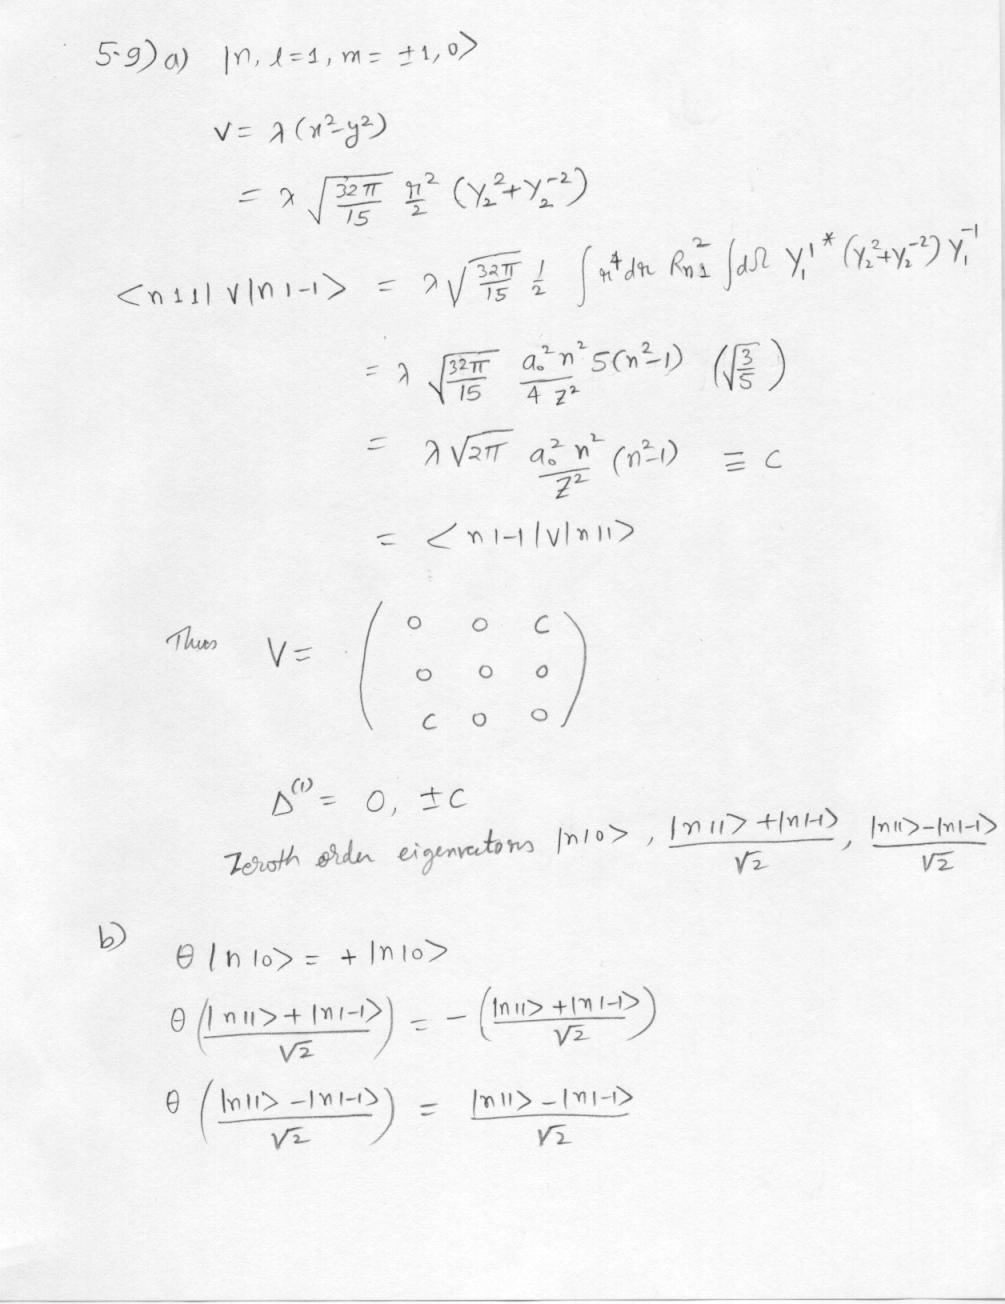 5.9) a) |n, l=1, m= ±1, 0>
V = λ (x²-y²)
= λ √(32π/15) r²/2 (Y₂²+Y₂⁻²)
<n11|V|n1-1> = λ √(32π/15) 1/2 ∫ r⁴dr R²ₙ₁ ∫dΩ Y₁¹* (Y₂²+Y₂⁻²) Y₁⁻¹
= λ √(32π/15) a₀²n²/(4 Z²) 5(n²-1) (√(3/5))
= λ √2π a₀²n²/Z² (n²-1) ≡ C
= <n1-1|V|n11>
Thus V = ( 0 0 C
0 0 0
C 0 0 )
Δ⁽¹⁾ = 0, ±C
Zeroth order eigenvectors |n10>, (|n11> + |n1-1>)/√2, (|n11> - |n1-1>)/√2
b)
θ |n10> = + |n10>
θ ((|n11> + |n1-1>)/√2) = - ((|n11> + |n1-1>)/√2)
θ ((|n11> - |n1-1>)/√2) = (|n11> - |n1-1>)/√2